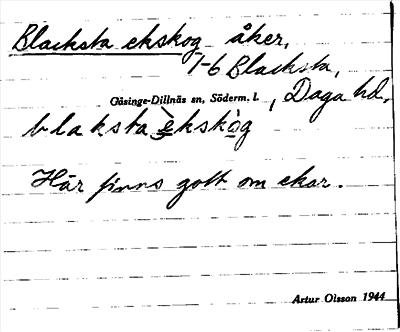 Blacksta ekskog åker,
1-6 Blacksta,
Gåsinge-Dillnäs sn, Söderm. l. , Daga hd.
blaksta èkskòg
Här finns gott om ekar.
Artur Olsson 1944